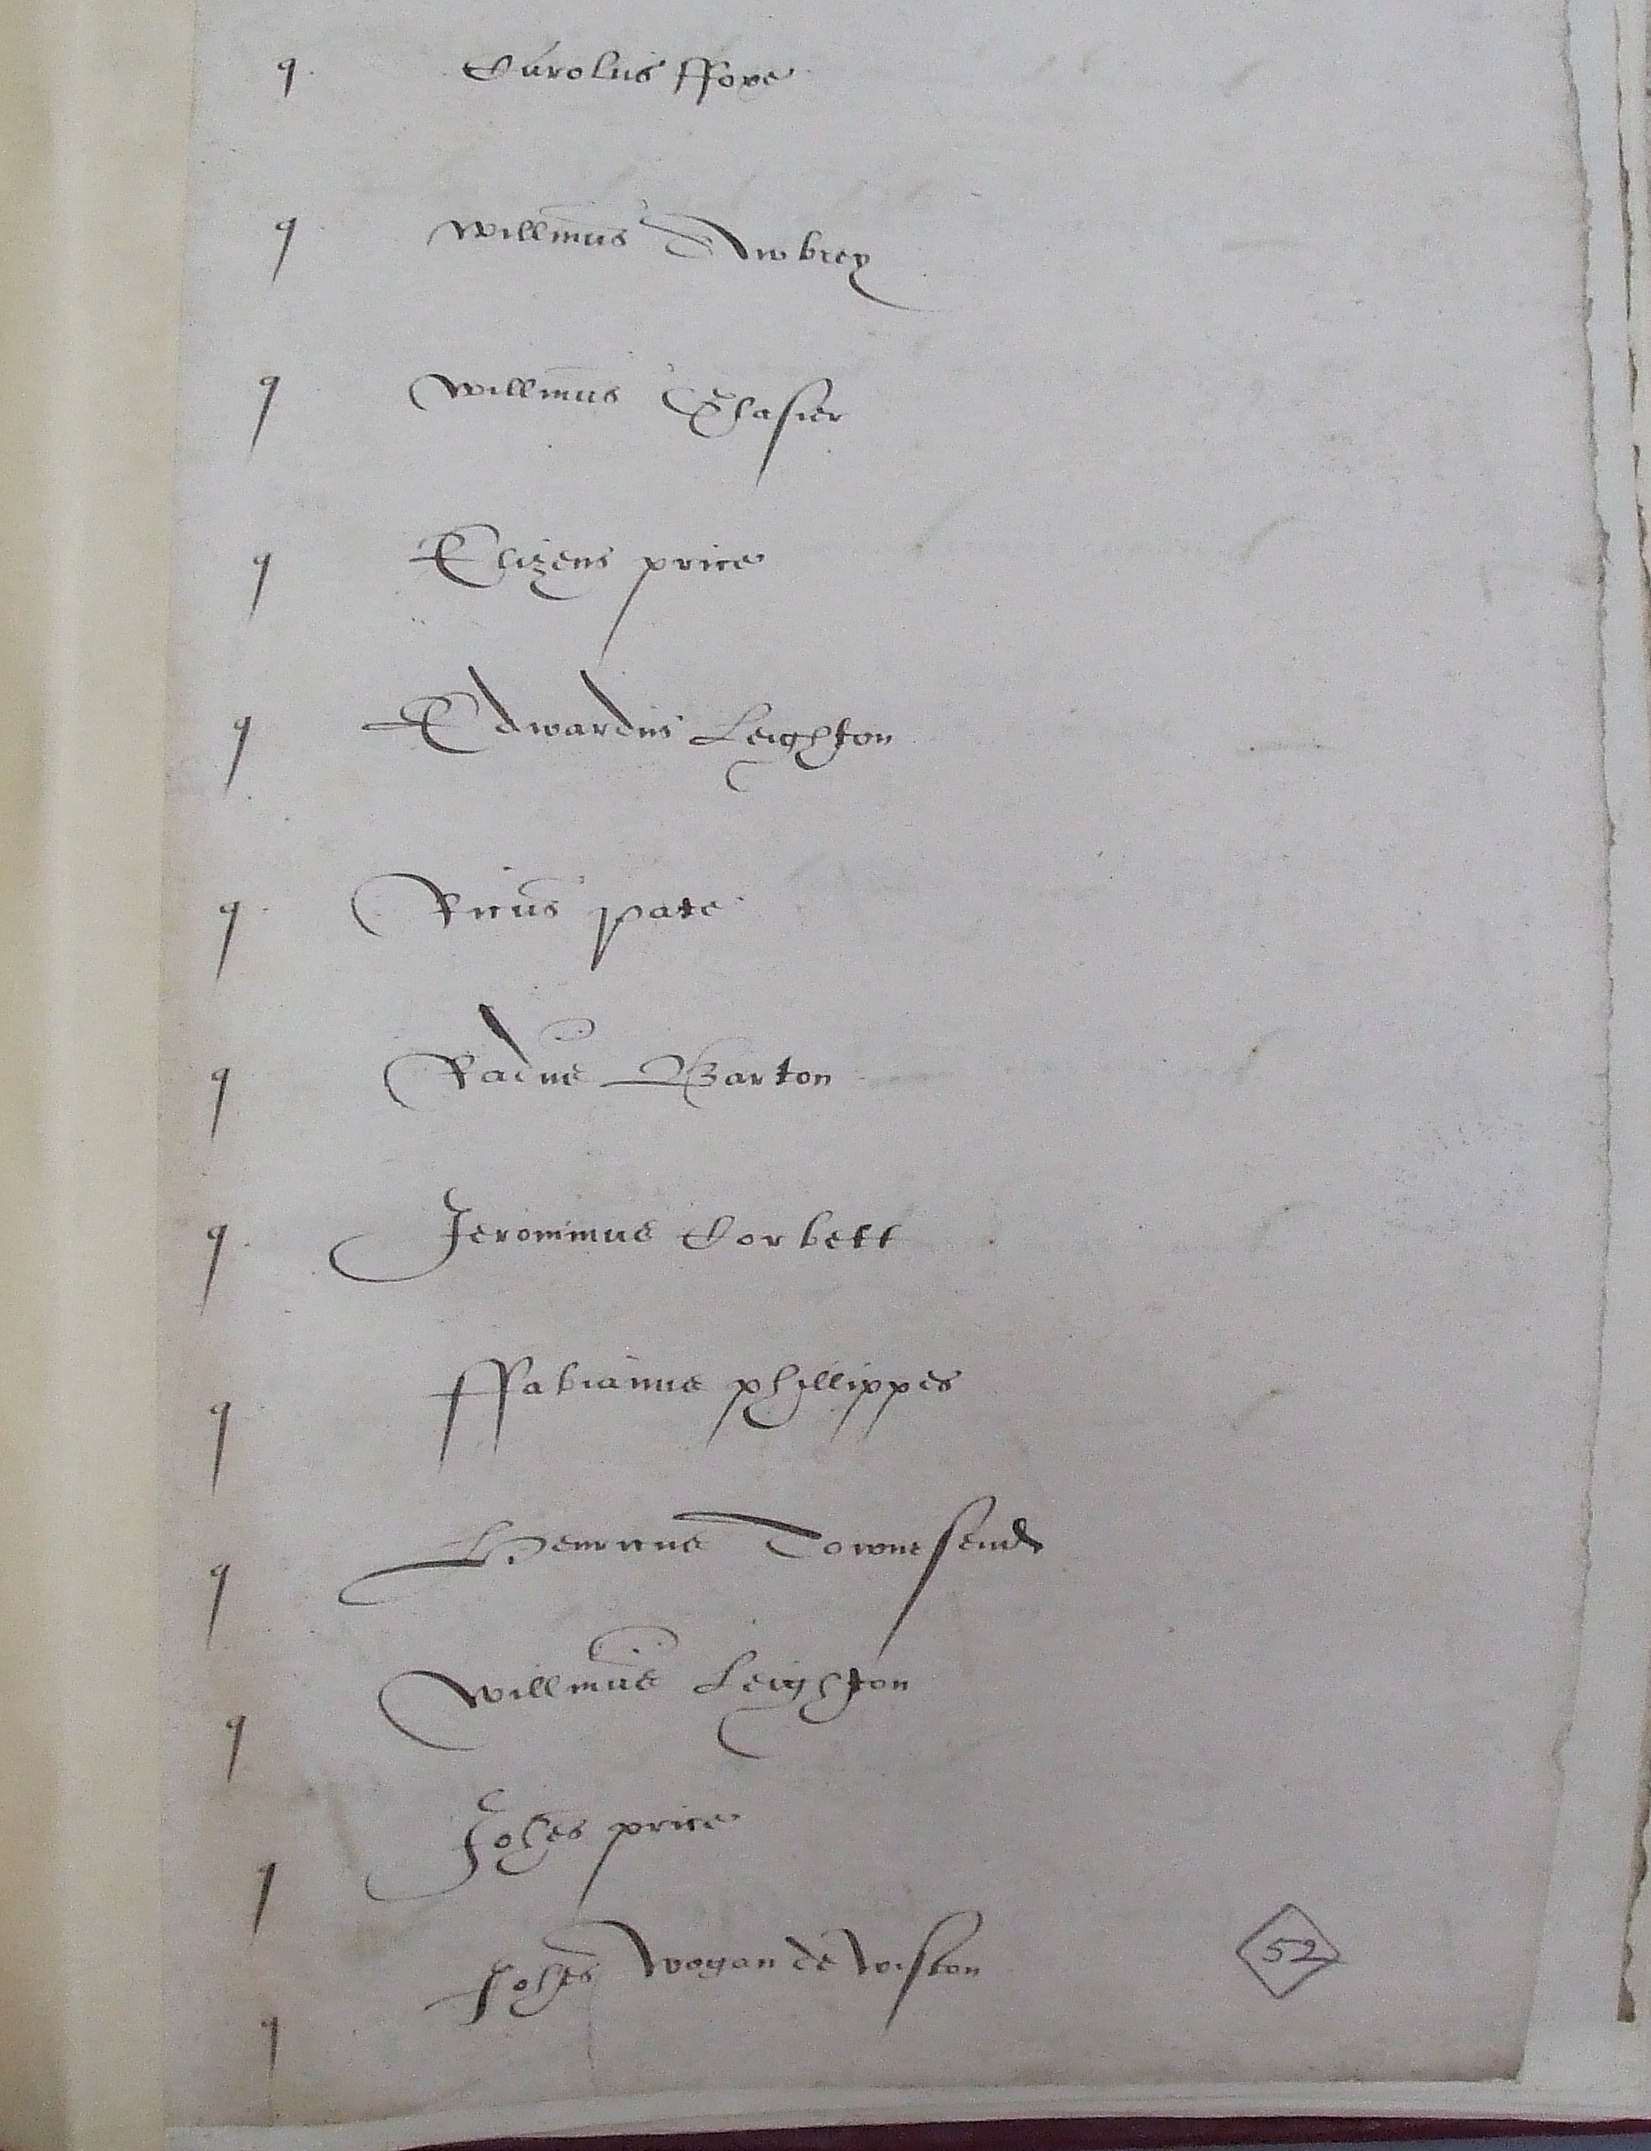 q Carolus ffoxe
q Willmus Awbrey
q Willmus Glasier
q Elizeus price
q Edwardus Leighton
q Ricus pate
q Radus Barton
q Jeronimus Corbett
q ffabianus phillippes
q Henricus Townesend
q Willmus Leighton
q Johes price
q Johes Wogan de Wiston
52